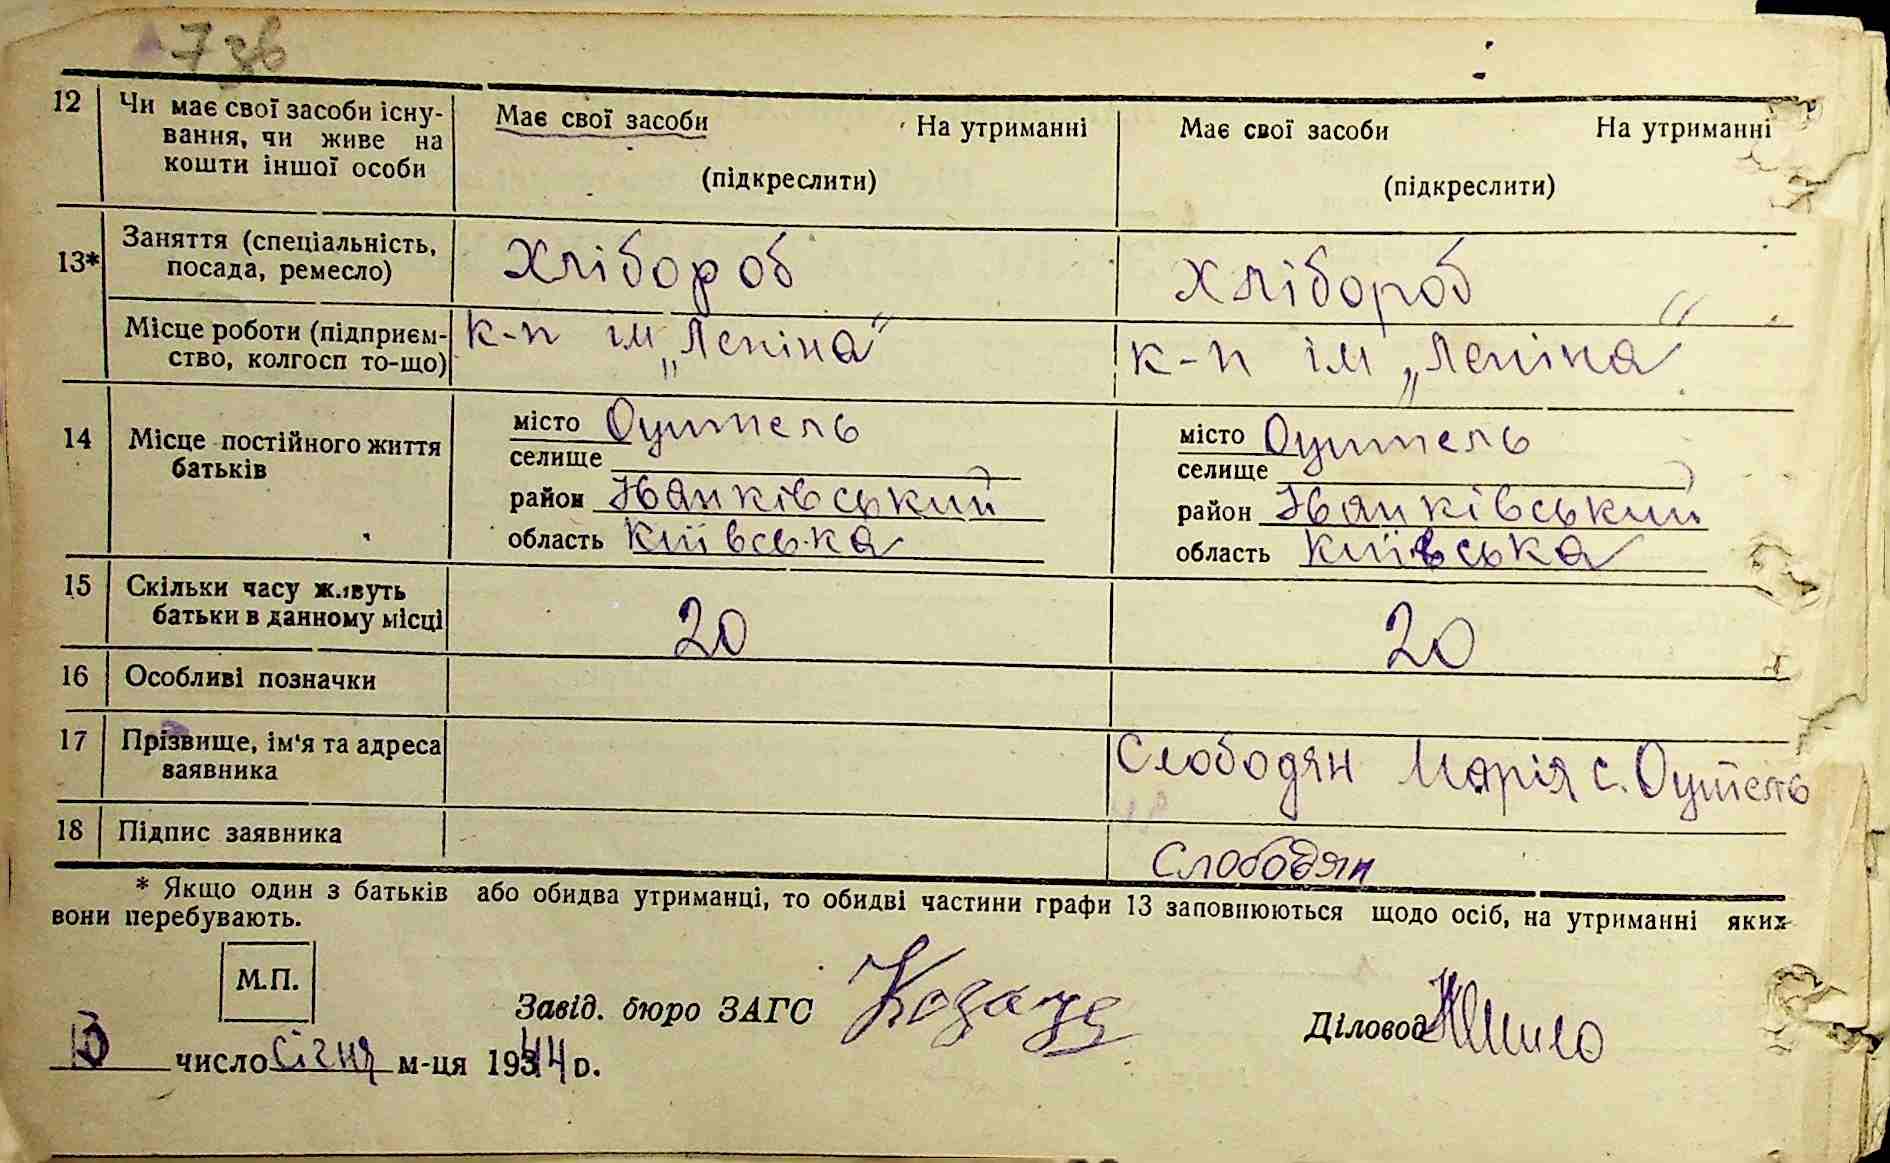 7 зв
12 Чи має свої засоби існу- Має свої засоби На утриманні Має свої засоби На утриманні
вання, чи живе на
кошти іншої особи (підкреслити) (підкреслити)
13* Заняття (спеціальність, Хлібороб Хлібороб
посада, ремесло)
Місце роботи (підприєм- к-п ім „Леніна“ к-п ім „Леніна“
ство, колгосп то-що)
14 Місце постійного життя місто Оцитель місто Оцитель
батьків селище селище
район Іванківський район Іванківський
область Київська область Київська
15 Скільки часу живуть
батьки в данному місці 20 20
16 Особливі позначки
17 Прізвище, ім'я та адреса Слободян Марія с. Оцитель
заявника
18 Підпис заявника Слободян
* Якщо один з батьків або обидва утриманці, то обидві частини графи 13 заповнюються щодо осіб, на утриманні яких
вони перебувають.
М.П.
Завід. бюро ЗАГС Діловод
число січня м-ця 1944 р.